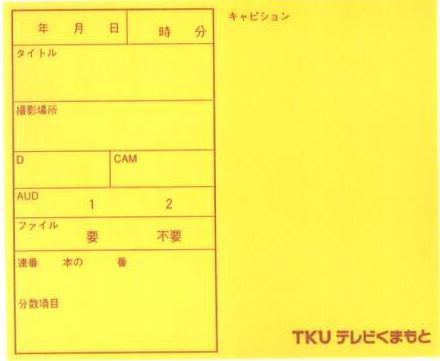 年 月 日 時 分
タイトル
撮影場所
D CAM
AUD
1 2
ファイル
要 不要
連番 本の 番
分数項目
キャピション
TKU テレビくまもと